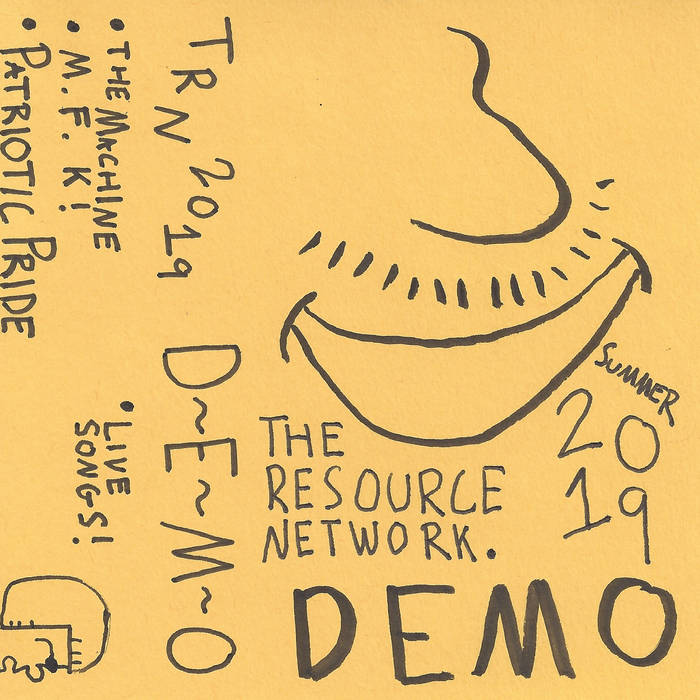 THE
RESOURCE
NETWORK.
DEMO
SUMMER
20
19
TRN 2019 D~E~M~O
• THE MACHINE
• M.F.K!
• PATRIOTIC PRIDE
• LIVE
SONGS!